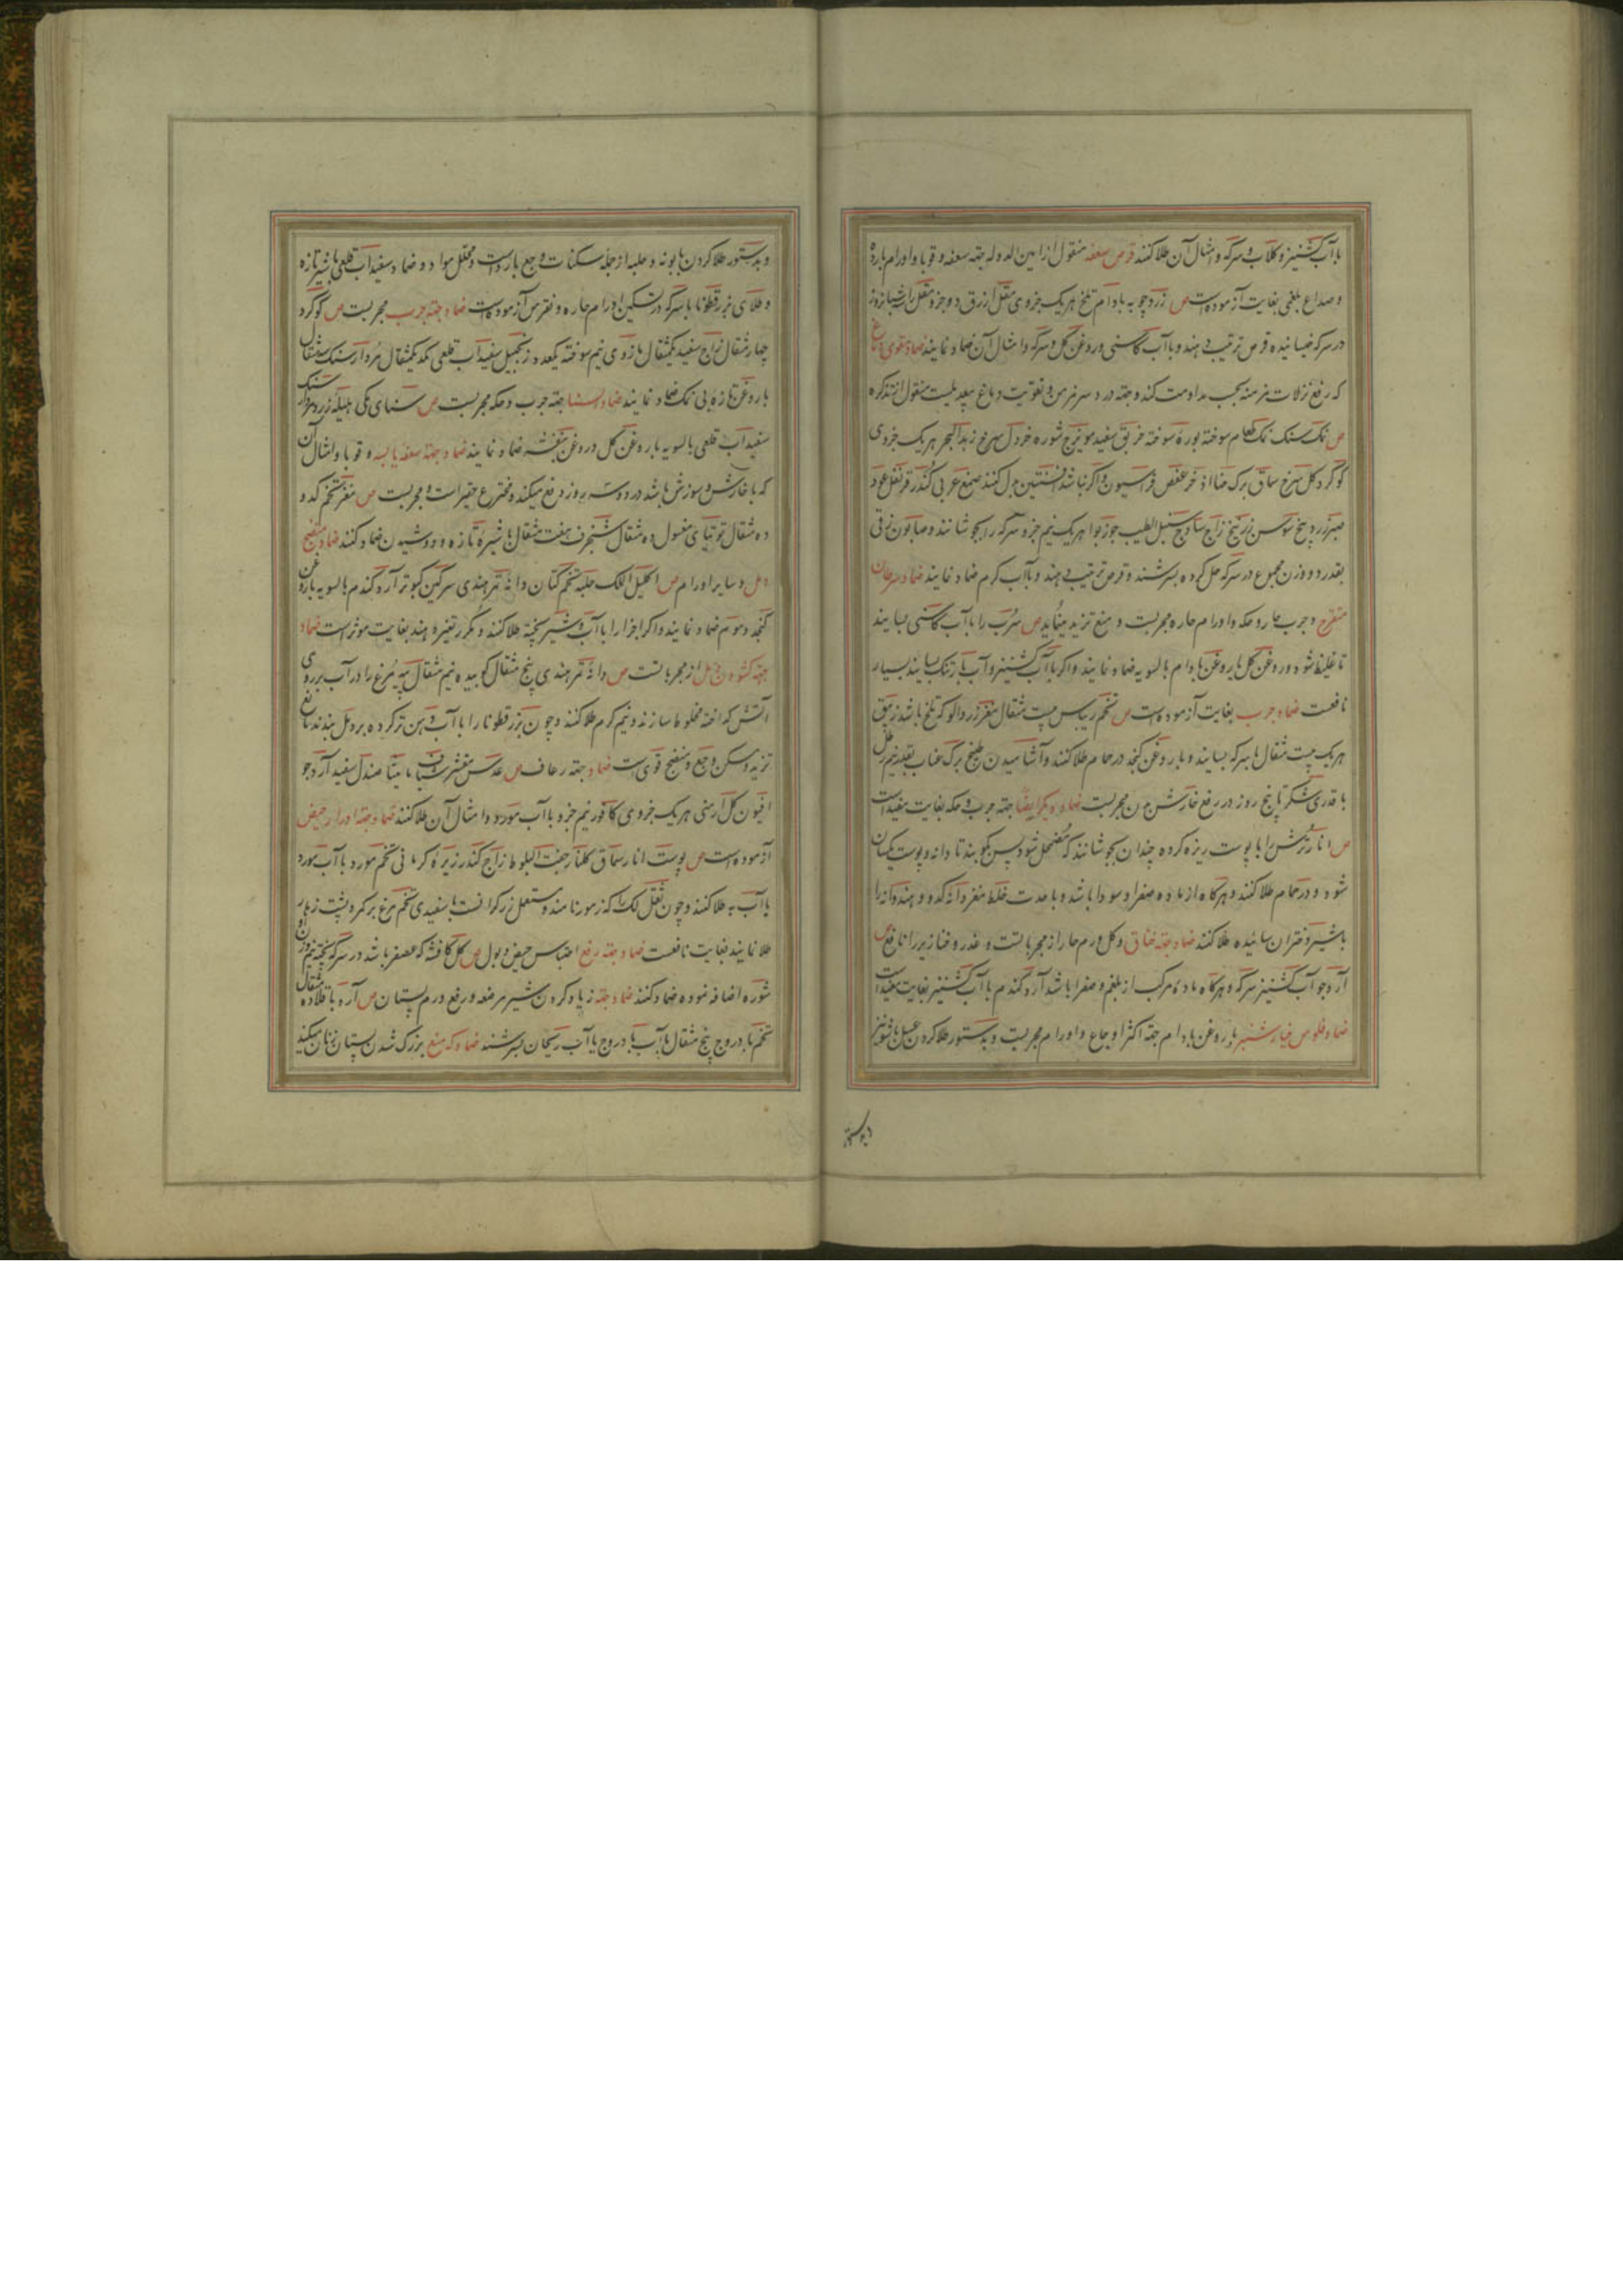 باآب کشنیز و کلاب و سرکه و امثال آن طلا کنند قرص سعفه منقول از امین الدوله جهته سعفه و قوبا و اورام بارده
و صداع بلغمی بغایت آزموده است ص زردچوبه بادام تلخ هریک جزوی مقل ازرق دو جزو مقل را شبانروز
در سرکه خیسانیده قرص ترتیب دهند و باآب کاسنی و روغن کل و سرکه و امثال آن ضماد نمایند ضماد مقوی دماغ
که رفع نزلات مزمنه بحسب مداومت کند و جهته درد سر مزمن و تقویت دماغ بیعدیلست منقول از تذکره
ص نمک سنک نمک طعام سوخته بوره سوخته خربق سفید مویزج شوره خردل سرخ زبدالبحر هریک جزوی
کوکرد کل سرخ سماق برک حنا اذخر عفص فراسیون و اکر نباشد افسنتین بدل کنند صمغ عربی کندر قرنفل عود
صبر زرد بیخ سوسن زرنیخ زاج ساذج سنبل الطیب جوزبوا هریک نیم جزو سرکه را بجوشانند و صابون رقی
بقدر دو وزن مجموع در سرکه حل کرده بسرشند و قرص ترتیب دهند و باآب کرم ضماد نمایند ضماد سرطان
متقرح و جرب حار و حکه و اورام حاره مجربست و منع تزید مینماید ص سرب را باآب کاسنی بسایند
تا غلیظ شود و روغن کل یا روغن بادام بالسویه ضماد نمایند و اکر باآب کشنیز و آب بارتنک بسایند بسیار
نافعست ضماد جرب بغایت آزموده است ص تخم ریباس بیست مثقال مغز زردالو که تلخ باشد زیبق
هریک بیست مثقال باسرکه بسایند و با روغن کنجد در حمام طلا کنند و آشامیدن طبیخ برک عناب بقدر نیم رطل
با قدری شکر تا پنج روز در رفع خارش بدن مجربست ضماد دیکر ایضا جهته جرب و حکه بغایت مفید است
ص انار ترش را با پوست ریزه کرده چندان بجوشانند که مضمحل شود پس بکوبند تا دانه و پوست یکسان
شود و در حمام طلا کنند و هرکاه از ماده صفرا و سودا باشد و با حدت خلط مغز دانه کدو و هندوانه را
باشیر دختران سائیده طلا کنند ضماد جهته خناق و کل ورم حار از مجرباتست و غدد و خنازیر را نافع ص
آرد جو آب کشنیز سرکه و هرکاه ماده مرکب از بلغم و صفرا باشد آرد کندم باآب کشنیز بغایت مفید است
ضماد فلوس خیارشنبر با روغن بادام جهته اکثر اوجاع و اورام مجربست و بدستور طلا کردن عسل باشونیز
و بدستور
و بدستور طلا کردن بابونه و حلبه از جمله مسکنات وجع بارد است و محلل مواد و ضماد سفیداب قلعی باشیر تازه
و طلای بزرقطونا باسرکه در تسکین اورام حاره و نقرس آزموده است ضماد جهته جرب مجربست ص کوکرد
چهار مثقال زاج سفید یکمثقال مازوی نیم سوخته یکعدد زنجبیل سفیداب قلعی یکمثقال مردارسنک سه مثقال
با روغن تازه بی نمک ضماد نمایند ضماد السنا جهته جرب و حکه مجربست ص سنای مکی هلیله زرد مردارسنک
سفیداب قلعی بالسویه با روغن کل و روغن بنفشه ضماد نمایند ضماد جهته سعفه یابسه و قوبا و امثال آن
که با خارش و سوزش باشد در دو سه روز دفع میکند و مخترع حقیر است و مجربست ص مغز تخم کدو
ده مثقال توتیای مغسول ده مثقال شنجرف هفت مثقال با شیره تازه و دوشیدن ضماد کنند ضماد منضج
دمل و سایر اورام ص اکلیل الملک حلبه تخم کتان دانه تمرهندی سرکین کبوتر آرد کندم بالسویه باروغن
کنجد و موم ضماد نمایند و اکر اجزا را باآب و شیر پخته طلا کنند و مکرر تغییر دهند بغایت موثر است ضماد
جهته کشودن دمل از مجرباتست ص دانه تمرهندی پنج مثقال کوبیده نیم مثقال پیه مرغ را در آب بر روی
آتش کداخته مخلوط سازند و نیم کرم طلا کنند و چون بزرقطونا را باآب دهن ترکرده بر دمل بندند مانع
تزید و مسکن وجع و منضج قوی است ضماد جهته رعاف ص عدس مقشر شیاف مامیثا صندل سفید آرد جو
افیون کل ارمنی هریک جزوی کافور نیم جزو باآب مورد و امثال آن طلا کنند ضماد جهته ادرار حیض
آزموده است ص پوست انار سماق کلنار جفت البلوط زاج کندر زیره کرمانی تخم مورد باآب مورد
یا آب به طلا کنند و چون ثفل لک را که زمور نامند و مستعمل زرکرانست باسفیدی تخم مرغ بر کمر و پشت زهار
طلا نمایند بغایت نافعست ضماد جهته رفع احتباس حیض و بول ص کل کافشه که عصفر باشد در سرکه پخته نیم وزن او
شوره اضافه نموده ضماد کنند ضماد جهته زیاد کردن شیر مرضعه و رفع ورم پستان ص آرد باقلا ده مثقال
تخم بادروج پنج مثقال باآب بادروج یا آب ریحان بسرشند ضماد که منع بزرک شدن پستان زنان میکند